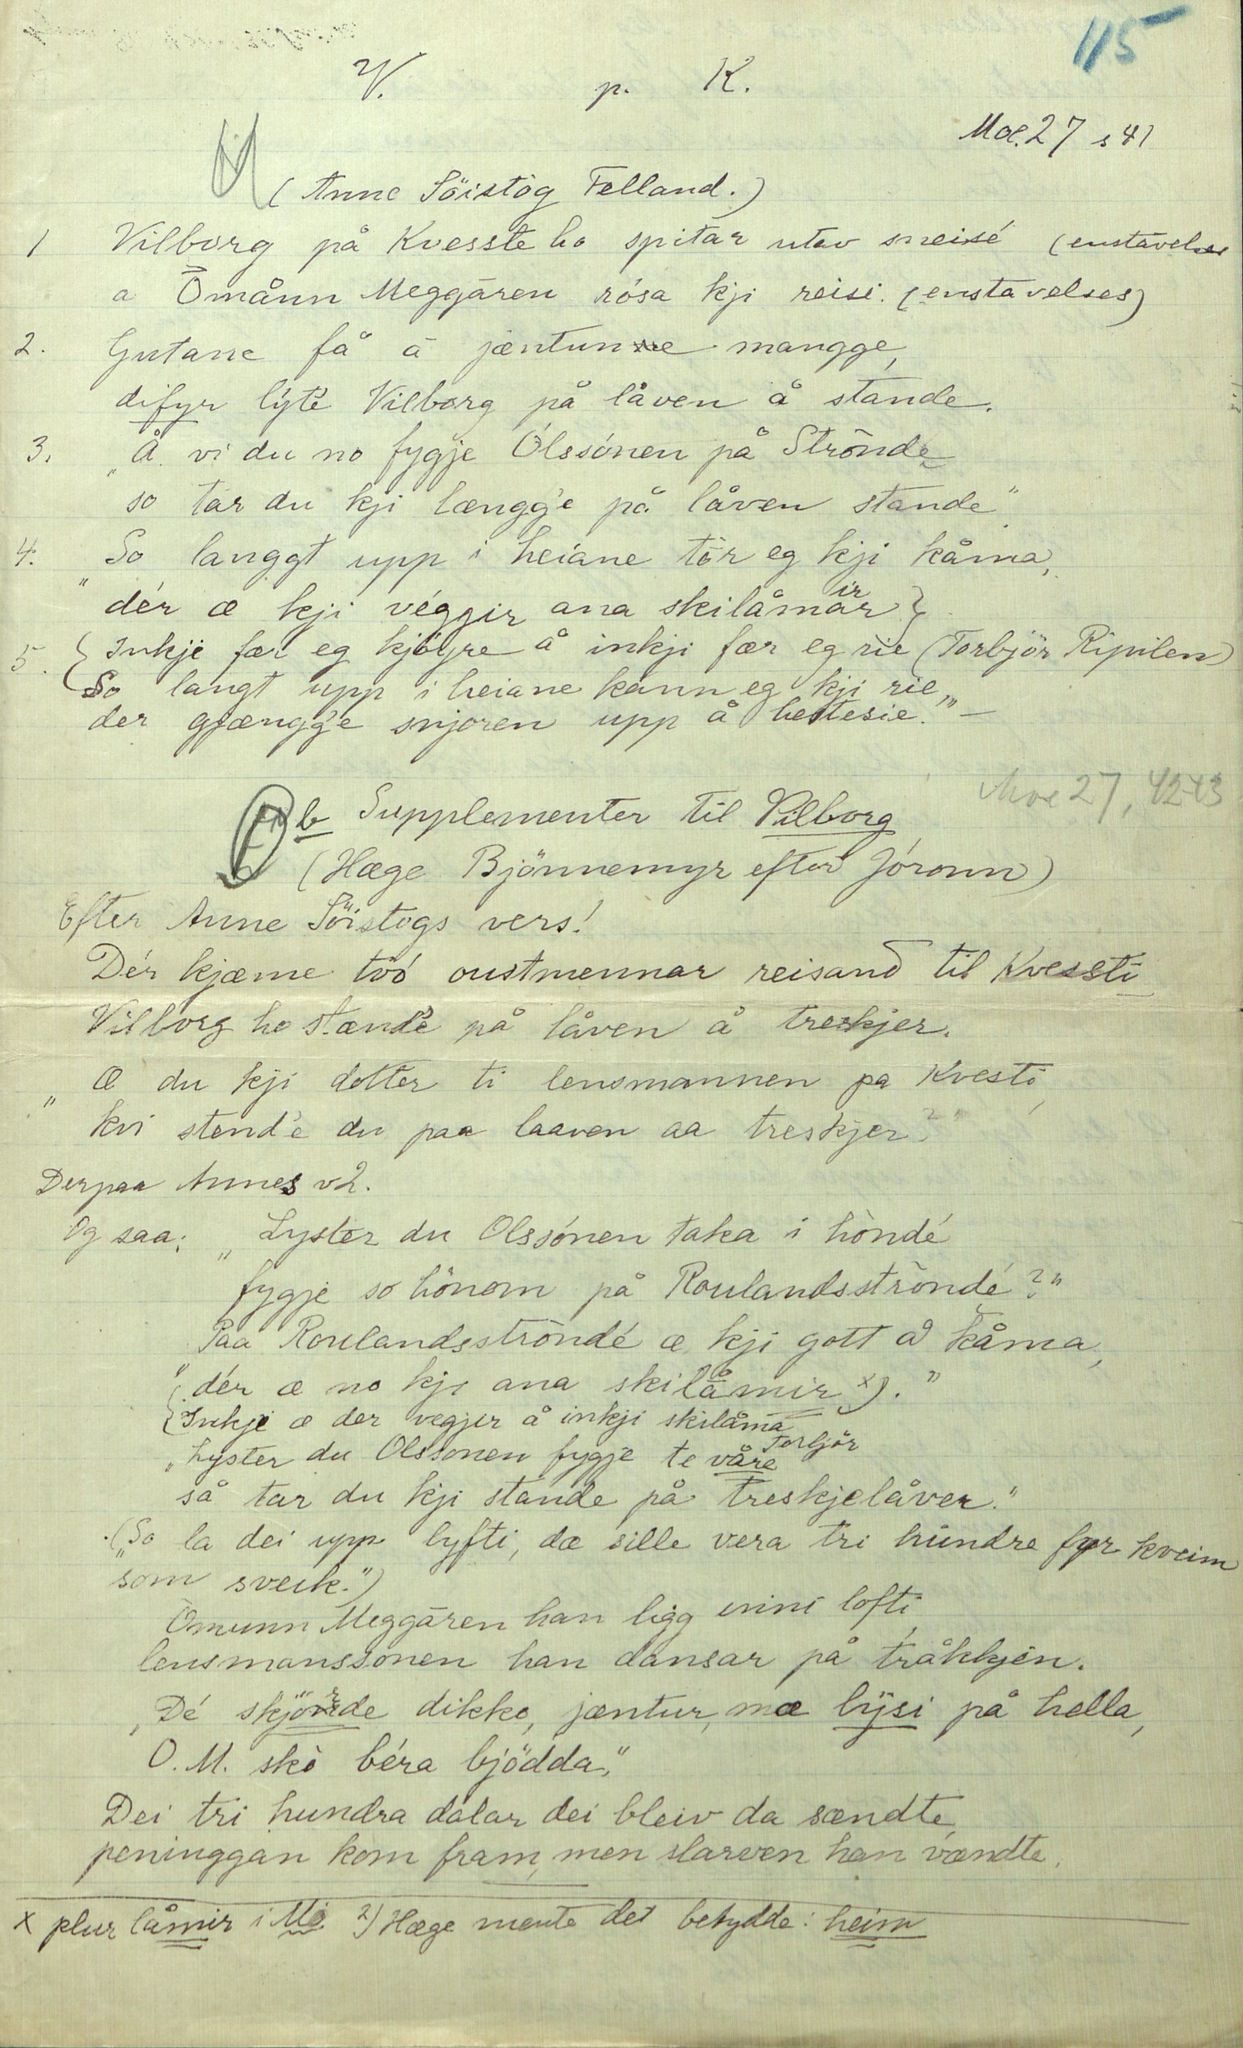 115
V. p. K.
Moe 27 s 41
(Anne Söistög Felland.)
1 Vilborg på Kvesste ho spitar utav sneisé (enstavelses
a Ōmånn Meggāren rósa kji reisi. (enstavelses)
2. Gutane få å jæntunne mangge,
difyr lýte Vilborg på låven å stande.
3. "Å vi du no fygje Ólssónen på Strönde
so tar du kji længg'e på låven stande"
4. So langgt upp i heiane tör eg kji kåma,
"dér æ kji véggir ana skilåmar} ir
5. {Inkje fær eg kjöyre å inkji fær eg rie (Torbjör Ripilen)
So langt upp i heiane kann eg kji rie,
der gjængg'e snjoren upp å hestesie."—
Moe 27, 42-43
b Supplementer til Vilborg
(Hæge Bjönnemyr efter Jóronn)
Efter Anne Söistogs vers!
Dér kjæme tvó oustmennar reisand til Kvessti
Vilborg ho stænd'e på låven å treskjer.
"Æ du kji dotter ti lensmannen pa Kvesti,
kvi stend'e du paa laaven aa treskjer?"
Derpaa Annes v2.
Og saa: "Lyster du Olssónen taka i hòndé
fygje so hönom på Roulandsströndé?"
Paa Roulandsströndé æ kji gott å kåma,
"dér æ no kji ana skilåmir x)."
{Inkje æ der vegjer å inkji skilåma
Torbjör
"Lyster du Olssonen fygje te våre
så tar du kji stande på treskjelåver."
("So la dei upp lyfti, dæ sille vera tri hundre fyr kveim
som sveik.")
Ōmunn Meggāren han ligg inni lofti,
lensmanssonen han dansar på tråkkjen.
"Dé skjörde dikko, jæntur, mæ lȳsi på hella,
O. M. skò béra bjödda,"
Dei tri hundra dalar dei bleiv da sændte,
peninggan kom fram, men slarven han vændte.
x plur låmir i Mo 2) Hæge mente det betydde: heim